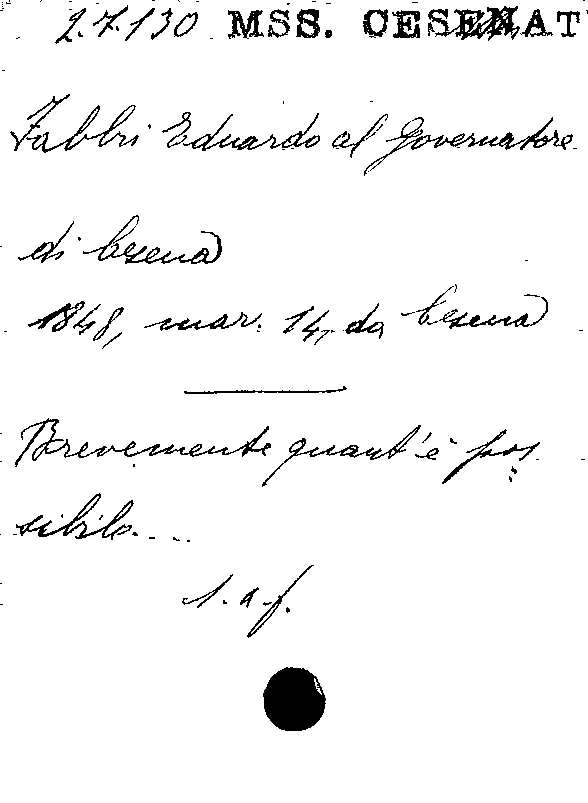 2.7.130 MSS. CESENAT
Fabbri Eduardo al Governatore
di Cesena
1848, mar. 14, da Cesena
Brevemente quant'è pos
sibile....
1. a f.